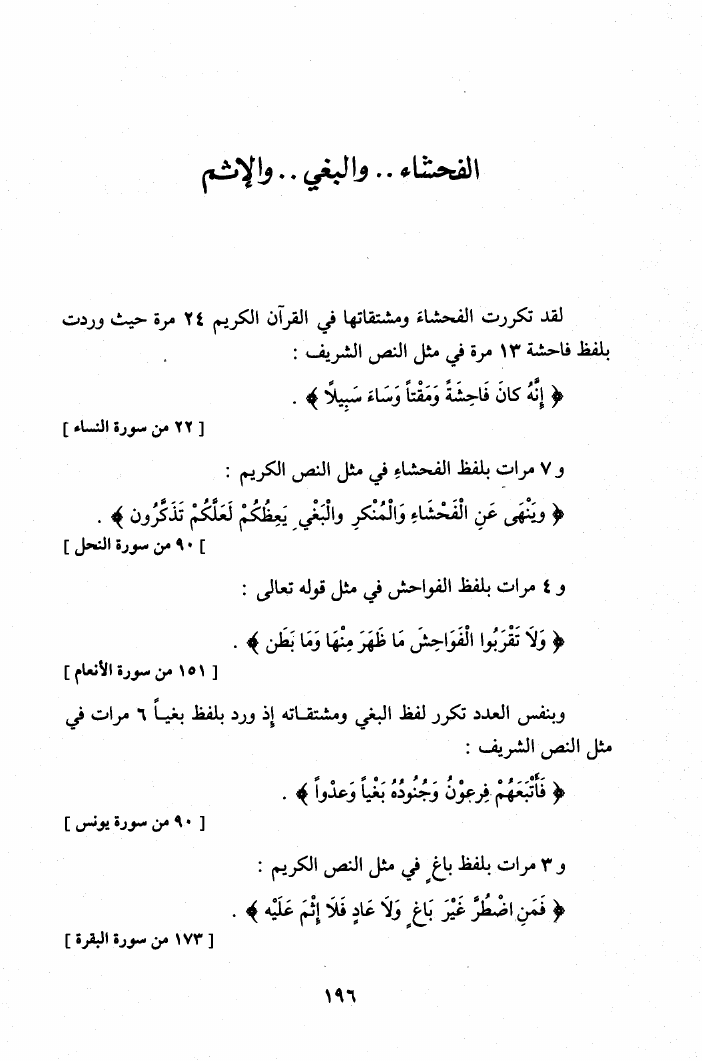 الفحشاء . . والبغي . . والإثم
لقد تكررت الفحشاءَ ومشتقاتها في القرآن الكريم ٢٤ مرة حيث وردت
بلفظ فاحشة ١٣ مرة في مثل النص الشريف :
﴿ إِنَّهُ كانَ فَاحِشَةً وَمَقْتاً وَسَاءَ سَبِيلاً ﴾ .
[ ٢٢ من سورة النساء ]
و ٧ مرات بلفظ الفحشاءِ في مثل النص الكريم :
﴿ ويَنْهَى عَنِ الْفَحْشَاءِ وَالْمُنْكرِ والْبَغْيِ يَعِظُكُمْ لَعَلَّكُمْ تَذَكَّرُون ﴾ .
] ٩٠ من سورة النحل ]
و ٤ مرات بلفظ الفواحش في مثل قوله تعالى :
﴿ وَلَا تَقْرَبُوا الْفَوَاحِشَ مَا ظَهَرَ مِنْهَا وَمَا بَطَن ﴾ .
[ ١٥١ من سورة الأنعام ]
وبنفس العدد تكرر لفظ البغي ومشتقاته إذ ورد بلفظ بغياً ٦ مرات في
مثل النص الشريف :
﴿ فَأَتْبَعَهُمْ فِرعوْنُ وَجُنُودُهُ بَغْياً وَعدْواً ﴾ .
[ ٩٠ من سورة يونس ]
و ٣ مرات بلفظ باغٍ في مثل النص الكريم :
﴿ فَمَنِ اضْطُرَّ غَيْرَ بَاغٍ وَلَا عَادٍ فَلَا إِثْمَ عَلَيْه ﴾ .
[ ١٧٣ من سورة البقرة ]
١٩٦